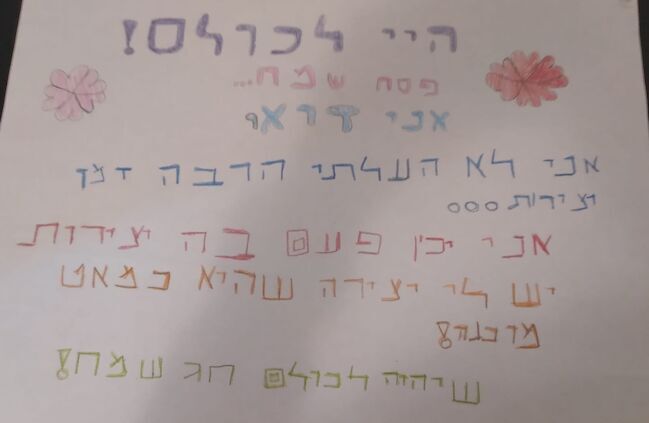 היי לכולם!
פסח שמח...
אני
אני לא העלתי הרבה זמן
יצירות...
אני יכין פעם בה יצירות
יש לי יצירה שהיא כמאט
מוכנה!
שיהיה לכולם חג שמח!